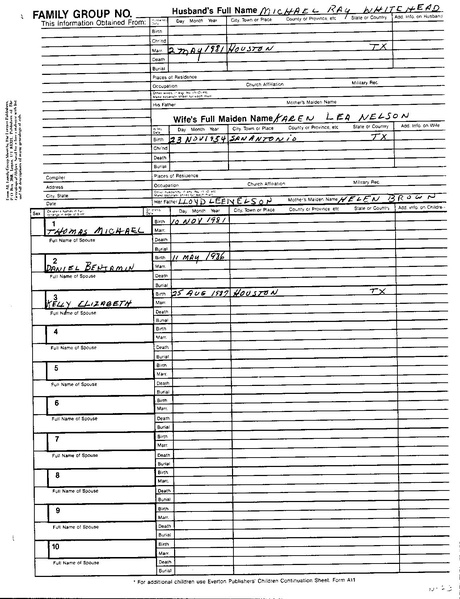 FAMILY GROUP NO.
Husband's Full Name MICHAEL RAY WHITEHEAD
This Information Obtained From:
Day Month Year City, Town or Place County or Province, etc. State or Country Add. Info. on Husband
Birth
Chr'nd
Marr. 2 MAY 1981 HOUSTON TX
Death
Burial
Places of Residence
Occupation Church Affiliation Military Rec.
His Father Mother's Maiden Name
Wife's Full Maiden Name KAREN LEA NELSON
Day Month Year City, Town or Place County or Province, etc. State or Country Add. Info. on Wife
Birth 23 NOV 1954 SAN ANTONIO TX
Chr'nd
Death
Burial
Compiler Places of Residence
Address Occupation Church Affiliation Military Rec.
City, State
Date Her Father LLOYD LEE NELSON Mother's Maiden Name HELEN BROWN
Sex Day Month Year City, Town or Place County or Province, etc. State or Country Add. Info. on Children
1 Birth 10 NOV 1981
THOMAS MICHAEL Marr.
Full Name of Spouse Death
Burial
2 Birth 11 MAY 1986
DANIEL BENJAMIN Marr.
Full Name of Spouse Death
Burial
3 Birth 25 AUG 1987 HOUSTON TX
KELLY ELIZABETH Marr.
Full Name of Spouse Death
Burial
4 Birth
Marr.
Full Name of Spouse Death
Burial
5 Birth
Marr.
Full Name of Spouse Death
Burial
6 Birth
Marr.
Full Name of Spouse Death
Burial
7 Birth
Marr.
Full Name of Spouse Death
Burial
8 Birth
Marr.
Full Name of Spouse Death
Burial
9 Birth
Marr.
Full Name of Spouse Death
Burial
10 Birth
Marr.
Full Name of Spouse Death
Burial
* For additional children use Everton Publishers' Children Continuation Sheet, Form A11